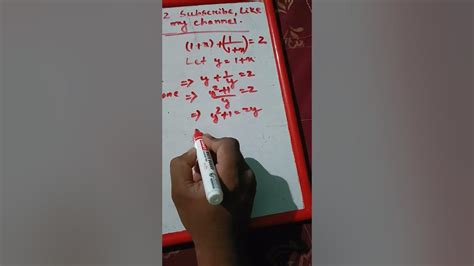 2 Subscribe, Like
my channel.
(1+x)+(1/(1+x))=2
Let y=1+x
=> y+1/y=2
one => (y²+1)/y=2
=> y²+1=2y